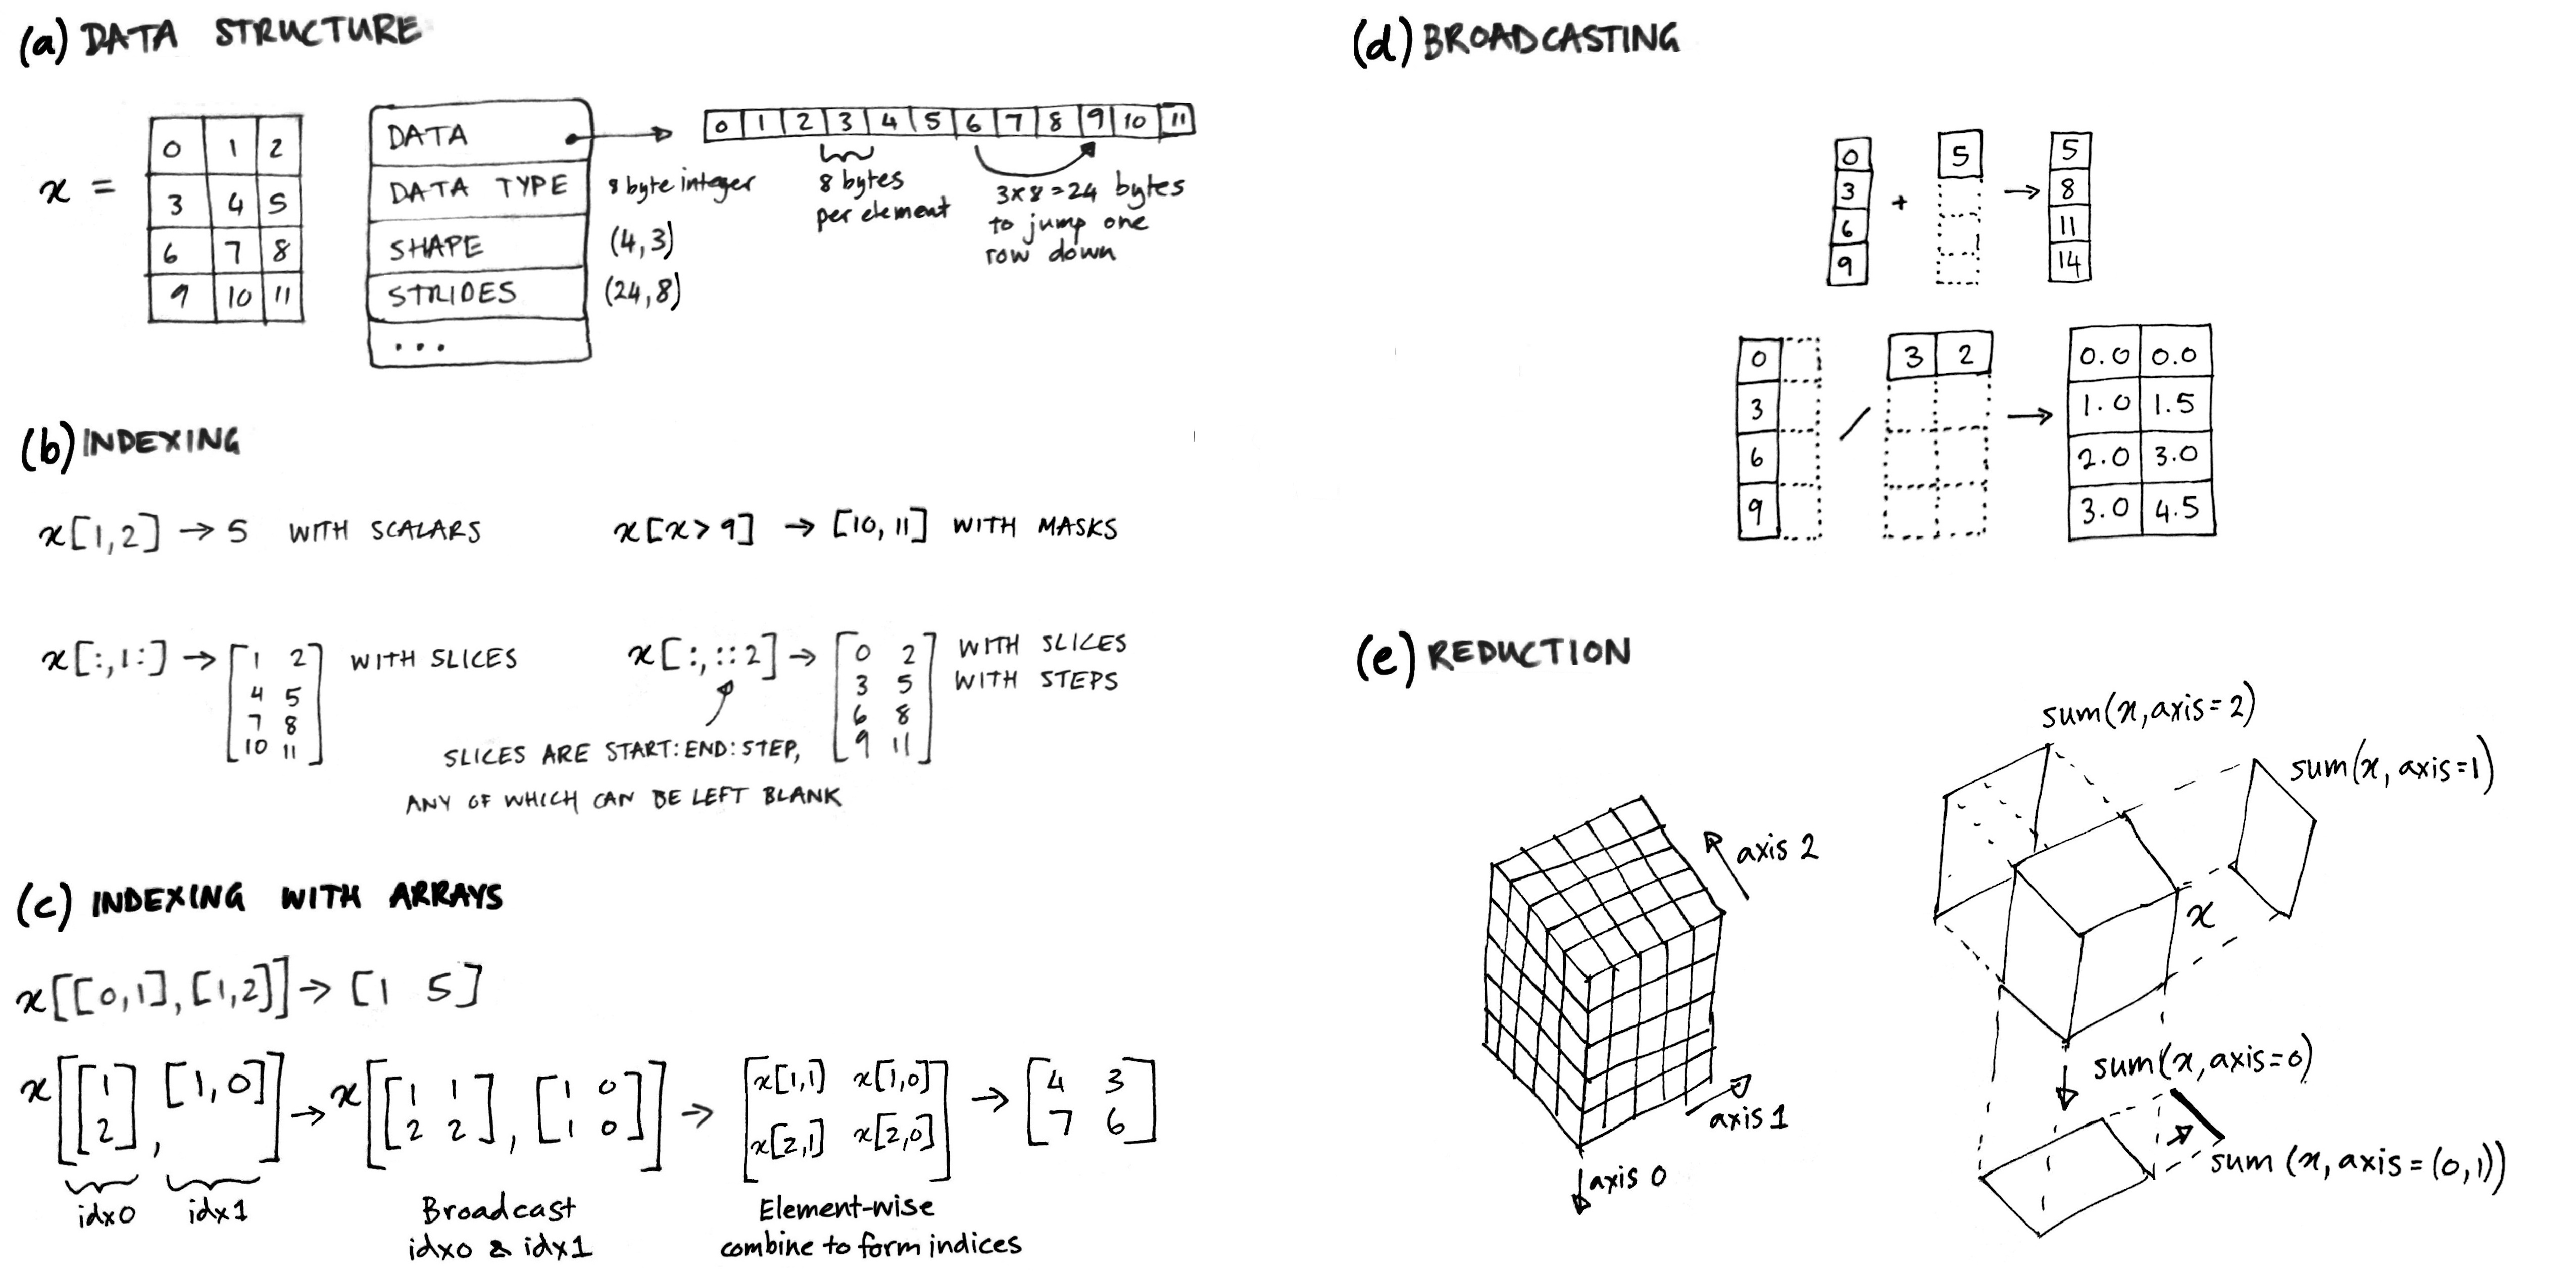 (a) DATA STRUCTURE
x =
0 1 2
3 4 5
6 7 8
9 10 11
DATA
DATA TYPE
SHAPE
STRIDES
...
8 byte integer
(4,3)
(24,8)
0 1 2 3 4 5 6 7 8 9 10 11
8 bytes
per element
3x8=24 bytes
to jump one
row down
(b) INDEXING
x[1,2] → 5 WITH SCALARS
x[x>9] → [10,11] WITH MASKS
x[:,1:] → [1 2 WITH SLICES
4 5
7 8
10 11]
x[:,::2] → [0 2
3 5
6 8
9 11]
WITH SLICES
WITH STEPS
SLICES ARE START:END:STEP,
ANY OF WHICH CAN BE LEFT BLANK
(c) INDEXING WITH ARRAYS
x[[0,1],[1,2]] → [1 5]
x[[1
2], [1,0]] → x[[1 1
2 2], [1 0
1 0]] → [x[1,1] x[1,0]
x[2,1] x[2,0]] → [4 3
7 6]
idx0 idx1
Broadcast
idx0 & idx1
Element-wise
combine to form indices
(d) BROADCASTING
0
3
6
9
+
5
→
5
8
11
14
0
3
6
9
/
3 2
→
0.0 0.0
1.0 1.5
2.0 3.0
3.0 4.5
(e) REDUCTION
axis 2
axis 1
axis 0
sum(x,axis=2)
sum(x, axis=1)
x
sum(x,axis=0)
sum (x, axis=(0,1))